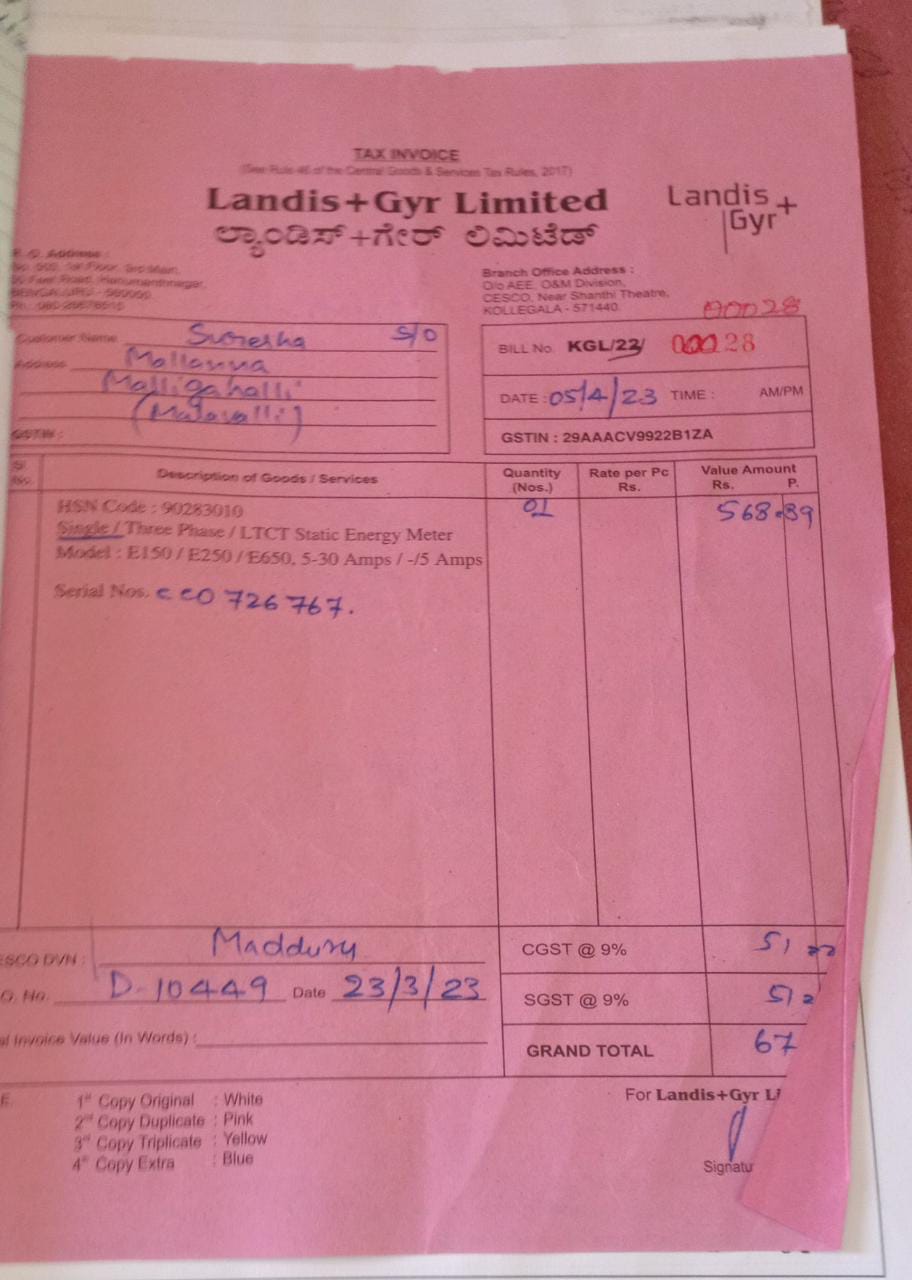 TAX INVOICE
(See Rule 46 of the Central Goods & Services Tax Rules, 2017)
Landis+Gyr Limited
ಲ್ಯಾಂಡಿಸ್+ಗೇರ್ ಲಿಮಿಟೆಡ್
Landis
Gyr+
Address :
Branch Office Address :
O/o AEE, O&M Division,
CESCO, Near Shanthi Theatre,
KOLLEGALA - 571440.
00028
Customer Name Suresha S/O
Address Mallanna
Malligahalli
(Malavalli)
GSTIN :
BILL No. KGL/22/ 00028
DATE : 05/4/23 TIME : AM/PM
GSTIN : 29AAACV9922B1ZA
Sl. No. Description of Goods / Services Quantity (Nos.) Rate per Pc Rs. Value Amount Rs. P.
HSN Code : 90283010 01 568.89
Single / Three Phase / LTCT Static Energy Meter
Model : E150 / E250 / E650, 5-30 Amps / -/5 Amps
Serial Nos. CCO 726767.
ESCO DVN : Maddury
O. No. D-10449 Date 23/3/23
al Invoice Value (In Words) :
CGST @ 9% 51
SGST @ 9% 51 2
GRAND TOTAL 67
E. 1st Copy Original : White
2nd Copy Duplicate : Pink
3rd Copy Triplicate : Yellow
4th Copy Extra : Blue
For Landis+Gyr Li
Signatu